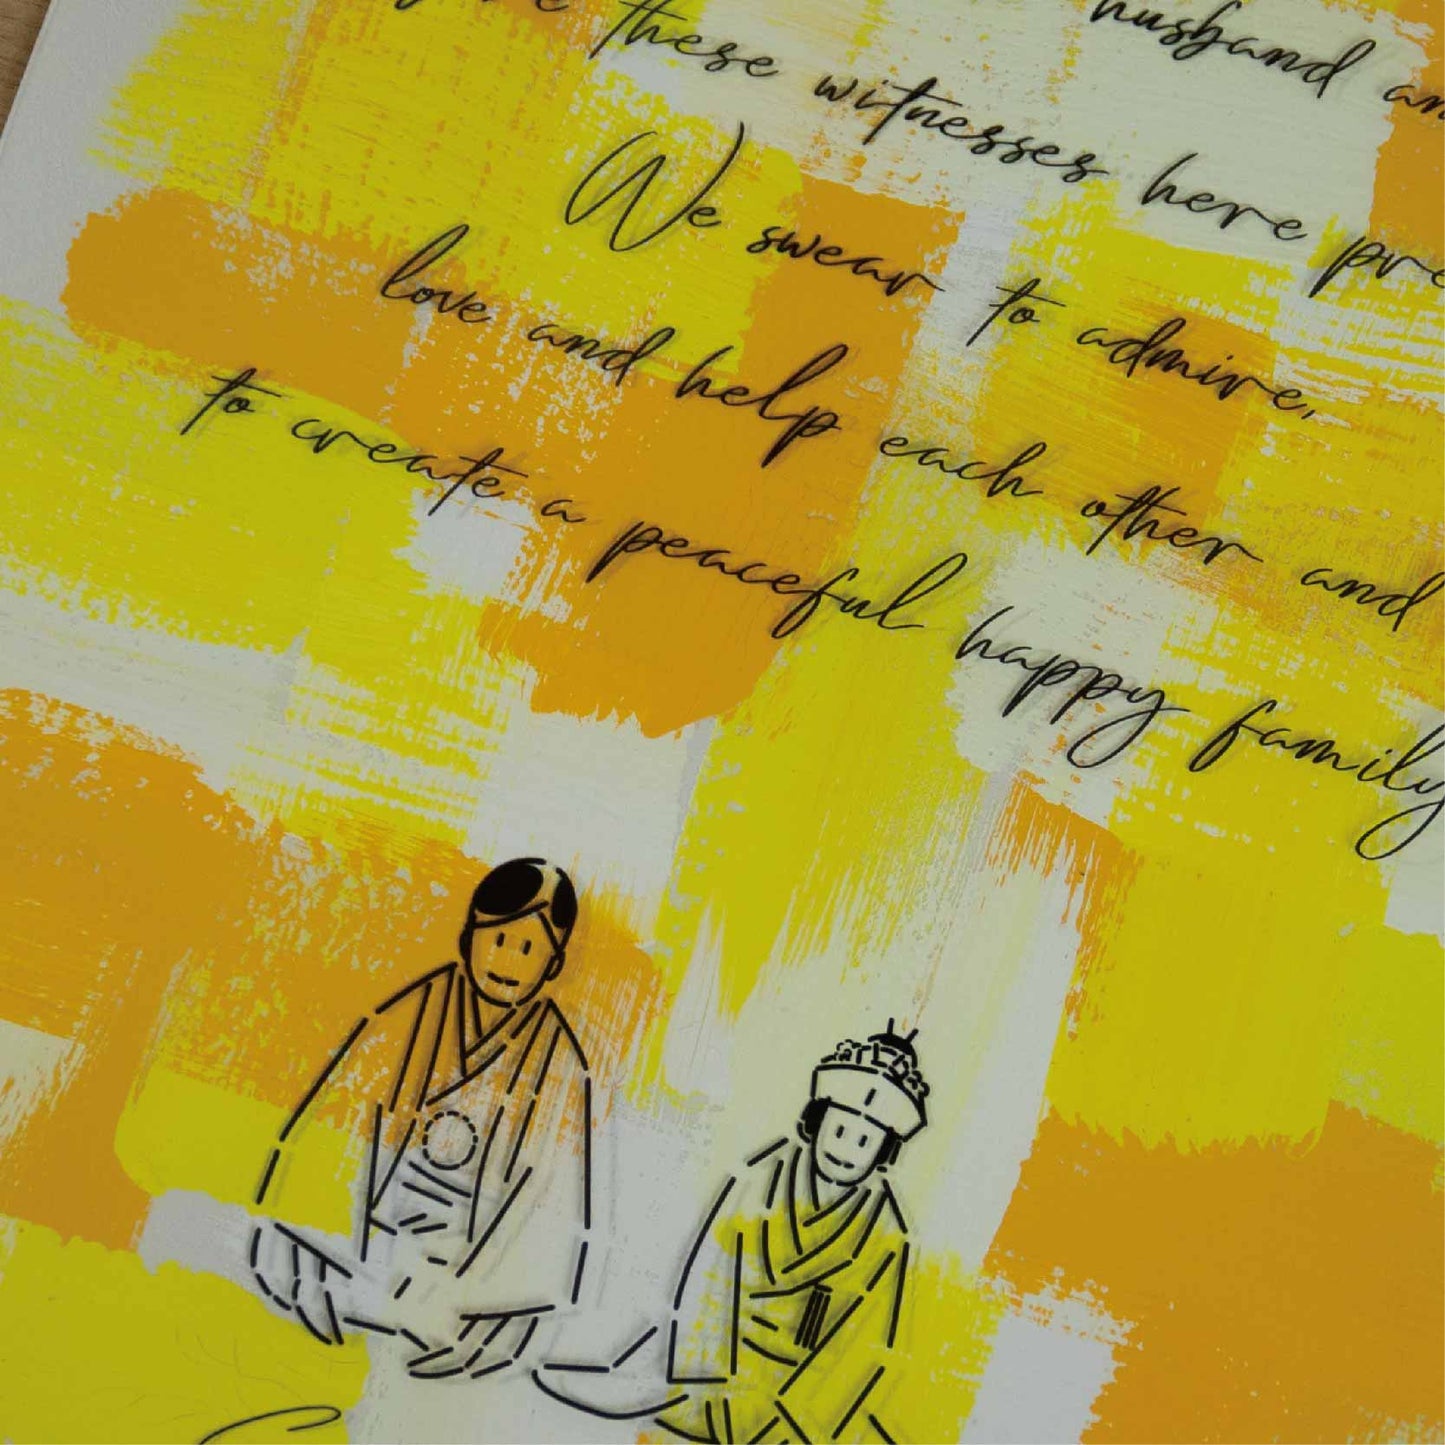 husband
these witnesses here
We swear to admire,
love and help each other and
to create a peaceful happy family